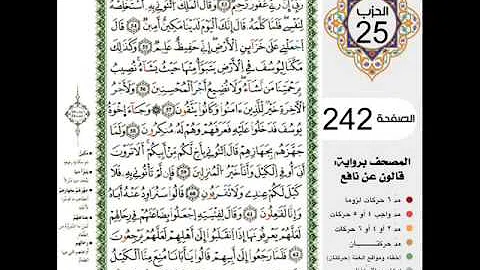 رَبِّي إِنَّ رَبِّي غَفُورٌ رَّحِيمٌ وَقَالَ الْمَلِكُ ائْتُونِي بِهِ أَسْتَخْلِصْهُ
لِنَفْسِي فَلَمَّا كَلَّمَهُ قَالَ إِنَّكَ الْيَوْمَ لَدَيْنَا مَكِينٌ أَمِينٌ قَالَ
اجْعَلْنِي عَلَى خَزَائِنِ الْأَرْضِ إِنِّي حَفِيظٌ عَلِيمٌ وَكَذَلِكَ
مَكَّنَّا لِيُوسُفَ فِي الْأَرْضِ يَتَبَوَّأُ مِنْهَا حَيْثُ يَشَاءُ نُصِيبُ
بِرَحْمَتِنَا مَن نَّشَاءُ وَلَا نُضِيعُ أَجْرَ الْمُحْسِنِينَ وَلَأَجْرُ
الْآخِرَةِ خَيْرٌ لِّلَّذِينَ ءَامَنُوا وَكَانُوا يَتَّقُونَ وَجَاءَ إِخْوَةُ
يُوسُفَ فَدَخَلُوا عَلَيْهِ فَعَرَفَهُمْ وَهُمْ لَهُ مُنكِرُونَ وَلَمَّا
جَهَّزَهُم بِجَهَازِهِمْ قَالَ ائْتُونِي بِأَخٍ لَّكُم مِّنْ أَبِيكُمْ أَلَا تَرَوْنَ
أَنِّي أُوفِي الْكَيْلَ وَأَنَا خَيْرُ الْمُنزِلِينَ فَإِن لَّمْ تَأْتُونِي بِهِ فَلَا
كَيْلَ لَكُمْ عِندِي وَلَا تَقْرَبُونِ قَالُوا سَنُرَاوِدُ عَنْهُ أَبَاهُ
وَإِنَّا لَفَاعِلُونَ وَقَالَ لِفِتْيَتِهِ اجْعَلُوا بِضَاعَتَهُمْ فِي رِحَالِهِمْ
لَعَلَّهُمْ يَعْرِفُونَهَا إِذَا انقَلَبُوا إِلَى أَهْلِهِمْ لَعَلَّهُمْ يَرْجِعُونَ
فَلَمَّا رَجَعُوا إِلَى أَبِيهِمْ قَالُوا يَا أَبَانَا مُنِعَ مِنَّا الْكَيْلُ
الحزب
25
الصفحة 242
المصحف برواية:
قالون عن نافع
مد ٦ حركات لزوما
مد واجب ٤ أو ٥ حركات
مد ٢ أو ٤ أو ٦ حركات
مد حركتان
إخفاء ومواقع الغنة (حركتان)